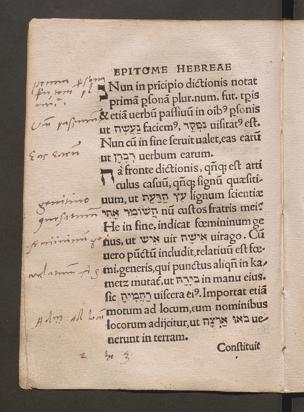 EPITOME HEBREAE
נ Nun in pricipio dictionis notat
primā psonā plur.num. fut. tpis
& etiā verbū passiuū in oibꝰ psonis
ut נעשה faciemꝰ, נפקד uisitatꝰ est.
Nun cū in fine seruit ualet, eas earū
ut דברן uerbum earum.
ה a fronte dictionis, qñqꝫ est arti
culus casuū, qñqꝫ signū quæsiti-
uum, ut עץ הדעת lignum scientiæ
השומר אחי nū custos fratris mei?
He in fine, indicat fœmininum ge
nus, ut איש אישה uirago. Cū
uero pūctū includit, relatiuū est fœ-
mi. generis, qui punctus aliqñ in ka-
metz mutat, ut בידה in manu eius.
sic רחמיה uiscera eiꝰ. Importat etiā
motum ad locum, cum nominibus
locorum adijcitur, ut באו ארצה ue-
nerunt in terram.
Constituit
Eas earū
genitiuo